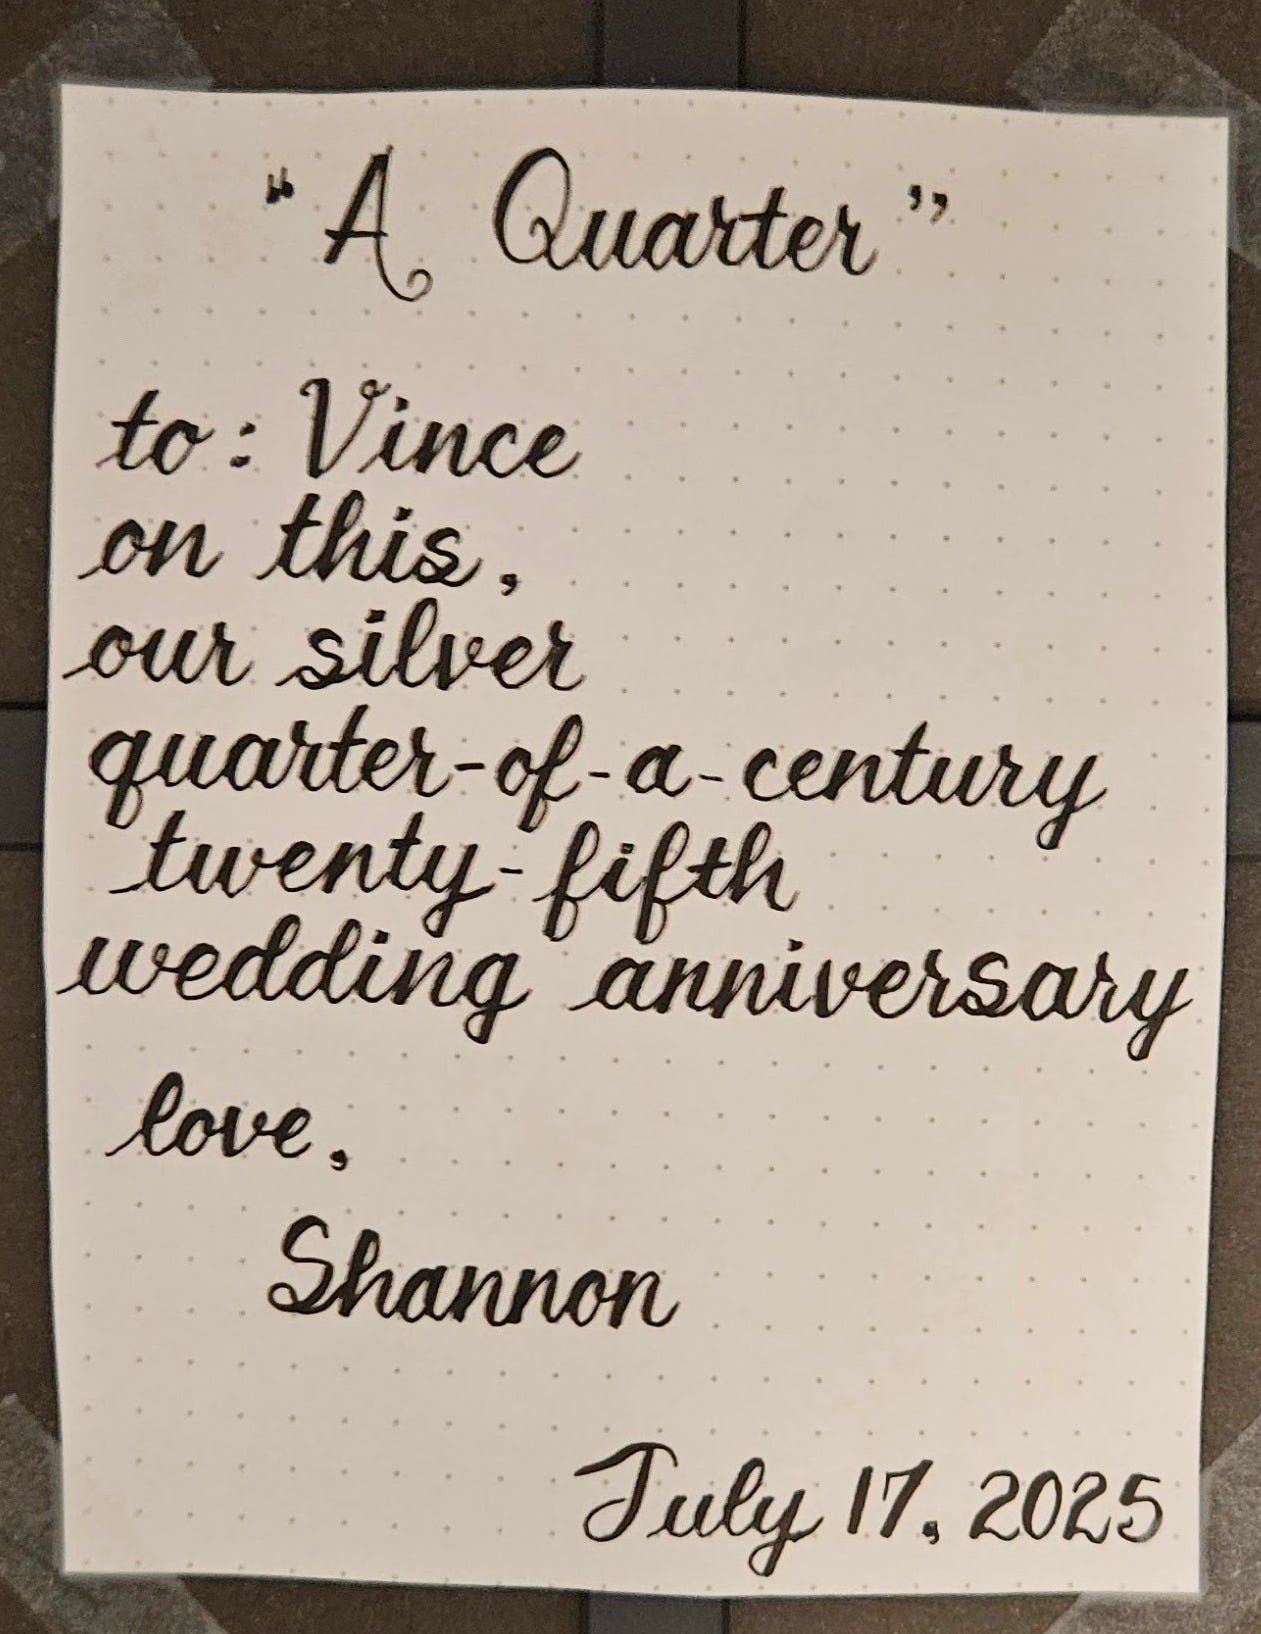 “A Quarter”
to: Vince
on this,
our silver
quarter-of-a-century
twenty-fifth
wedding anniversary
love,
Shannon
July 17, 2025